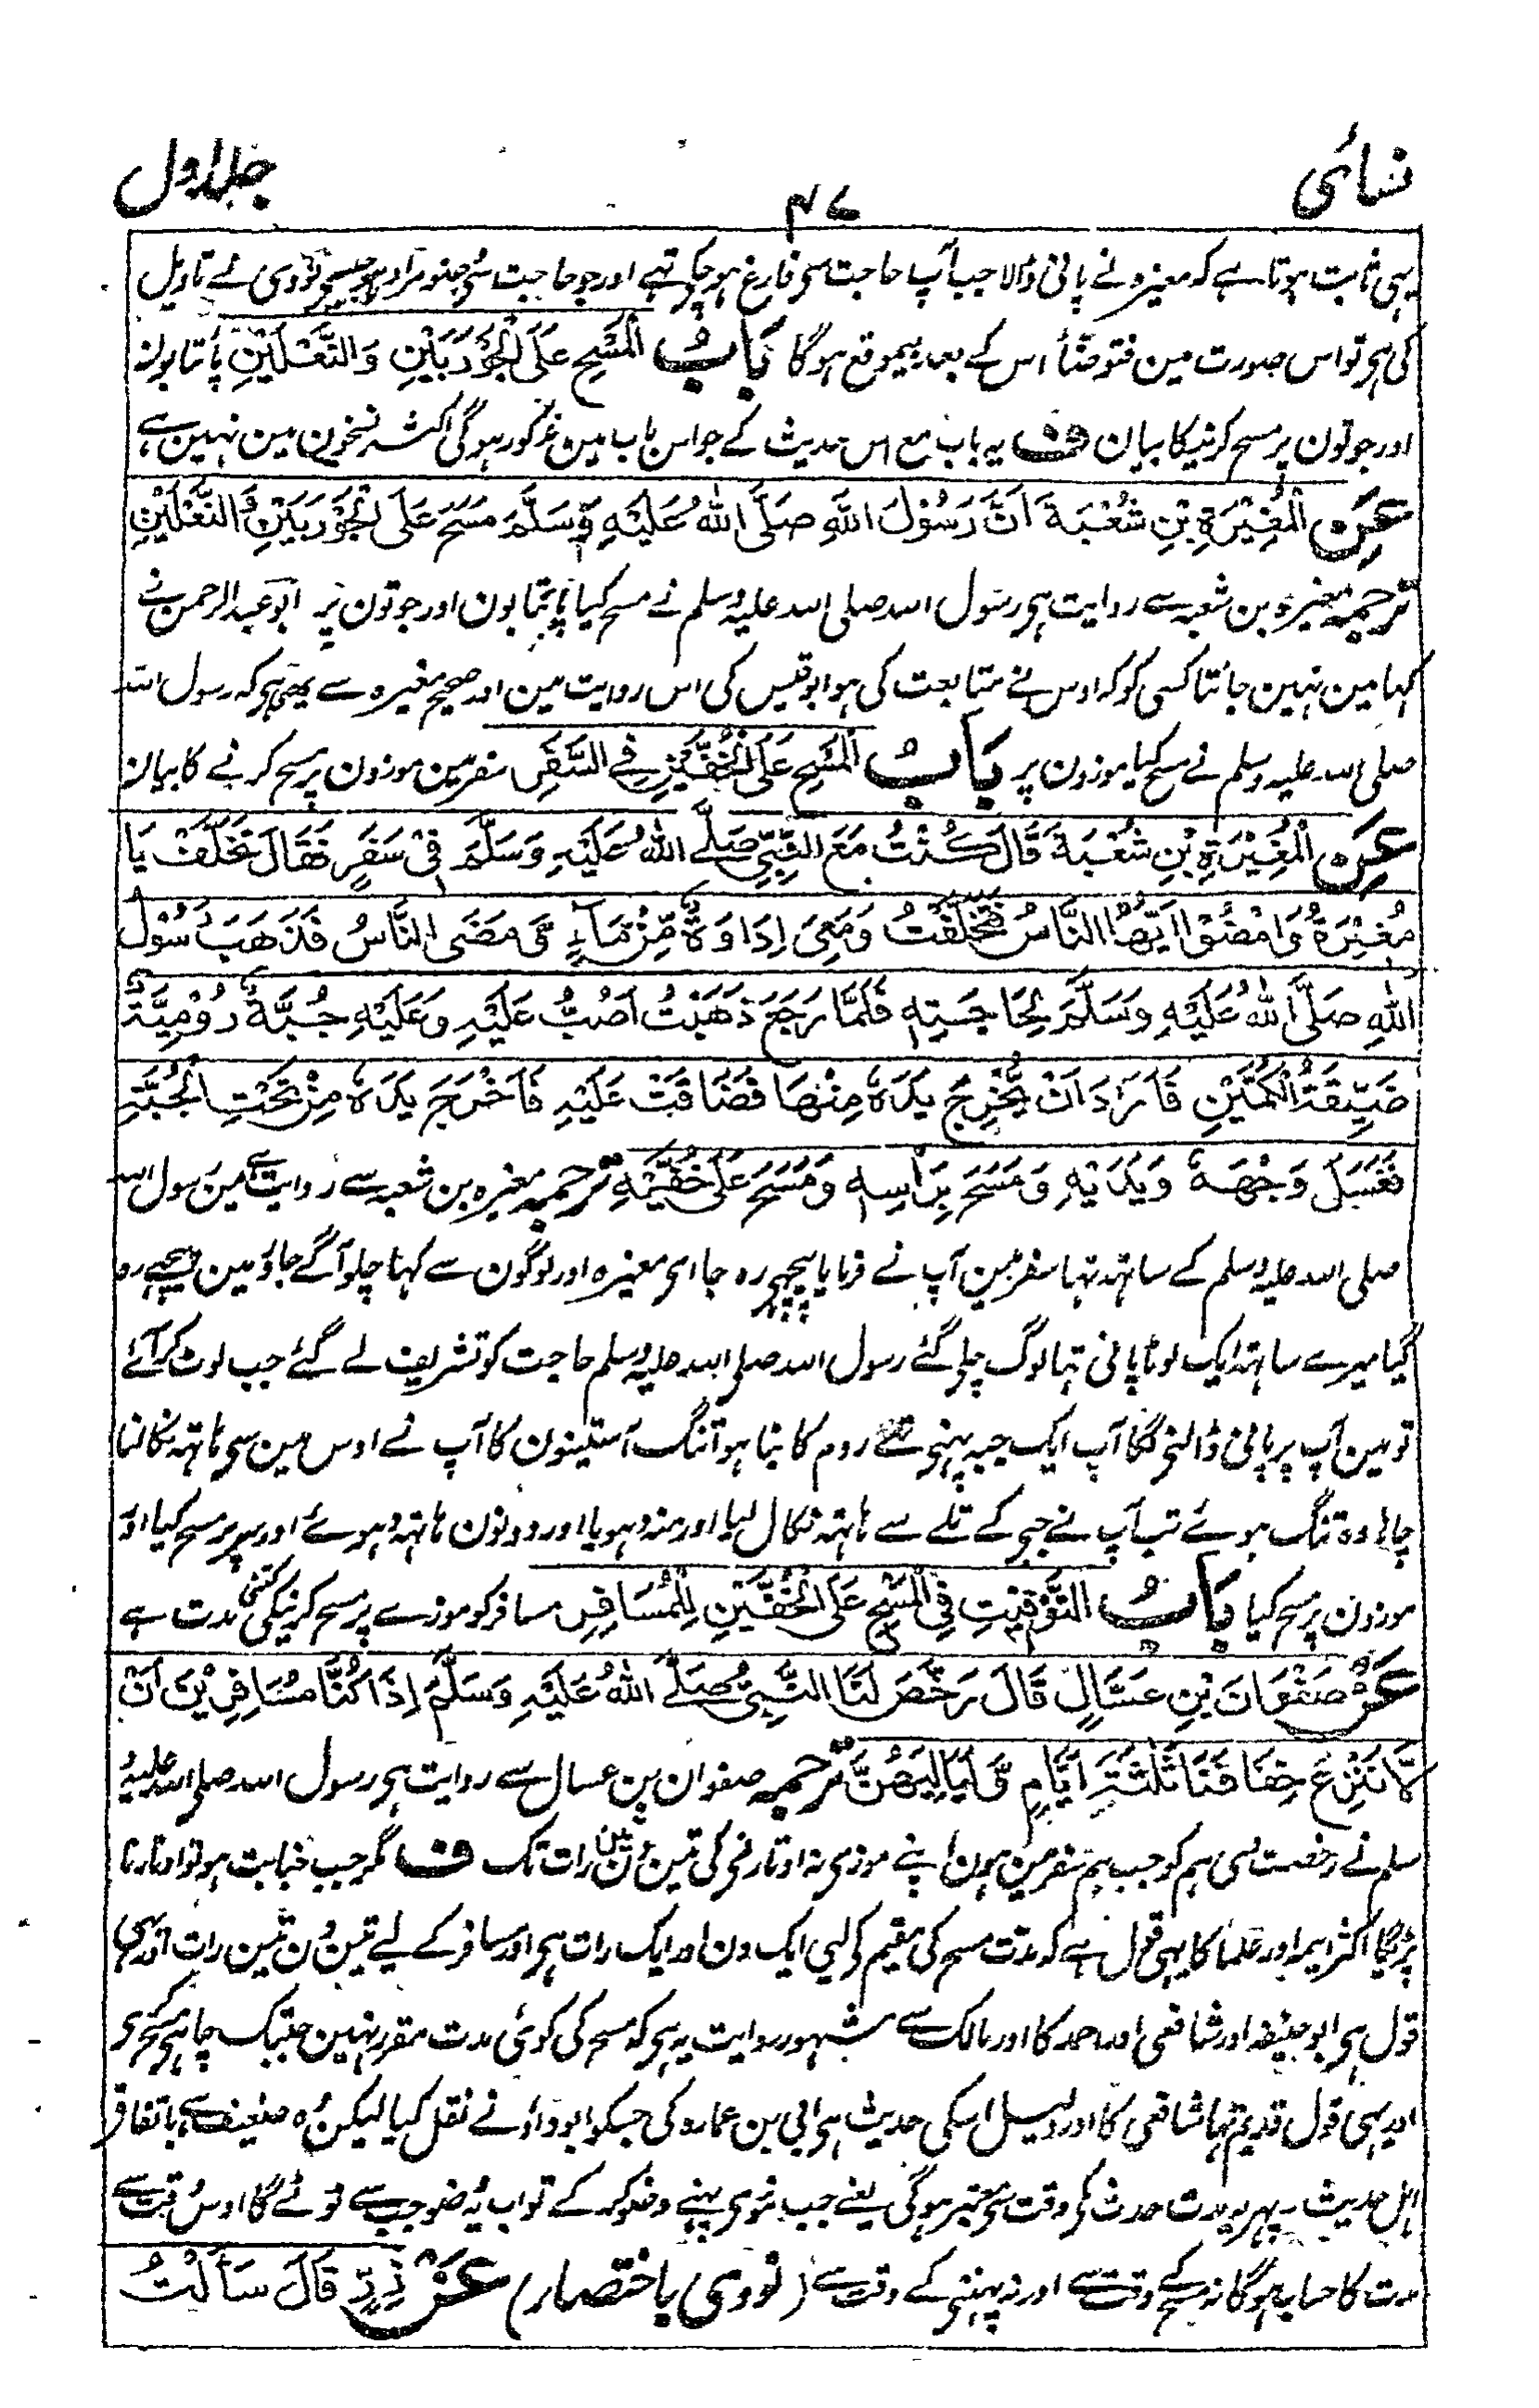 نسائی
۴۷
جلد اول
یہی ثابت ہوتا ہے کہ مغیرہ نے پانی ڈالا جب آپ حاجت سی فارغ ہو چکے تہے اور جو حاجت سے وضو مراد ہو جیسی نووی نے تاویل
کی ہی تو اس صورت مین فتوضأ اس کے بعد بیموقع ہوگا بَابُ الْمَسْحِ عَلَى الْجَوْرَبَيْنِ وَالنَّعْلَيْنِ پائتابون
اور جوتون پر مسح کرنیکا بیان ف یہ باب مع اس حدیث کے جو اس باب مین مذکور ہوگی اکثر نسخون مین نہین ہے
عَنِ الْمُغِيْرَةِ بْنِ شُعْبَةَ اَنَّ رَسُوْلَ اللّٰهِ صَلَّى اللّٰهُ عَلَيْهِ وَسَلَّمَ مَسَحَ عَلَى الْجَوْرَبَيْنِ وَالنَّعْلَيْنِ
ترجمہ مغیرہ بن شعبہ سے روایت ہی رسول اللہ صلی اللہ علیہ وسلم نے مسح کیا پائتابون اور جوتون پر ابو عبدالرحمن نے
کہا مین نہین جانتا کسی کو کہ اوس نے متابعت کی ہو ابو قیس کی اس روایت مین اور صحیح مغیرہ سے یہی ہی کہ رسول اللہ
صلی اللہ علیہ وسلم نے مسح کیا موزون پر بَابُ الْمَسْحِ عَلَى الْخُفَّيْنِ فِي السَّفَرِ سفر مین موزون پر مسح کرنے کا بیان
عَنِ الْمُغِيْرَةِ بْنِ شُعْبَةَ قَالَ كُنْتُ مَعَ النَّبِيِّ صَلَّى اللّٰهُ عَلَيْهِ وَسَلَّمَ فِيْ سَفَرٍ فَقَالَ تَخَلَّفْ يَا
مُغِيْرَةُ وَامْضُوْا اَيُّهَا النَّاسُ فَتَخَلَّفْتُ وَمَعِيَ اِدَاوَةٌ مِّنْ مَاءٍ وَّمَضَى النَّاسُ فَذَهَبَ رَسُوْلُ
اللّٰهِ صَلَّى اللّٰهُ عَلَيْهِ وَسَلَّمَ لِحَاجَتِهٖ فَلَمَّا رَجَعَ ذَهَبْتُ اَصُبُّ عَلَيْهِ وَعَلَيْهِ جُبَّةٌ رُوْمِيَّةٌ
ضَيِّقَةُ الْكُمَّيْنِ فَاَرَادَ اَنْ يُّخْرِجَ يَدَهٗ مِنْهَا فَضَاقَتْ عَلَيْهِ فَاَخْرَجَ يَدَهٗ مِنْ تَحْتِ الْجُبَّةِ
فَغَسَلَ وَجْهَهٗ وَيَدَيْهِ وَمَسَحَ بِرَاْسِهٖ وَمَسَحَ عَلٰى خُفَّيْهِ ترجمہ مغیرہ بن شعبہ سے روایت ہے مین رسول اللہ
صلی اللہ علیہ وسلم کے ساتھ تہا سفر مین آپ نے فرمایا پیچہی رہ جا ای مغیرہ اور لوگون سے کہا چلو آگے جاؤ مین پیچہے رہ
گیا میرے ساتھ ایک لوٹا پانی تہا لوگ چلے گئے رسول اللہ صلی اللہ علیہ وسلم حاجت کو تشریف لے گئے جب لوٹ کر آئے
تو مین آپ پر پانی ڈالنے لگا آپ ایک جبہ پہنے تہے روم کا بنا ہوا تنگ آستینون کا آپ نے اوس مین سی ہاتھ نکالنا
چاہا وہ تنگ ہوئے تب آپ نے جبے کے تلے سے ہاتھ نکال لیا اور منہ دہویا اور دونون ہاتھ دہوئے اور سر پر مسح کیا اور
موزون پر مسح کیا بَابُ التَّوْقِيْتِ فِي الْمَسْحِ عَلَى الْخُفَّيْنِ لِلْمُسَافِرِ مسافر کو موزے پر مسح کرنیکی کتنی مدت ہے
عَنْ صَفْوَانَ بْنِ عَسَّالٍ قَالَ رَخَّصَ لَنَا النَّبِيُّ صَلَّى اللّٰهُ عَلَيْهِ وَسَلَّمَ اِذَا كُنَّا مُسَافِرِيْنَ اَنْ
لَّا نَنْزِعَ خِفَافَنَا ثَلٰثَةَ اَيَّامٍ وَّلَيَالِيَهُنَّ ترجمہ صفوان بن عسال سے روایت ہی رسول اللہ صلی اللہ علیہ و
سلم نے رخصت دی ہم کو جب ہم سفر مین ہون اپنے موزی نہ اوتارنے کی تین دن تین رات تک ف مگر جب جنابت ہو تو اوتارنا
پڑیگا اکثر ایمہ اور علما کا یہی قول ہے کہ مدت مسح کی مقیم کے لیی ایک دن اور ایک رات ہی اور مسافر کے لیے تین دن تین رات اور یہی
قول ہی ابو حنیفہ اور شافعی اور احمد کا اور مالک سے مشہور روایت یہ ہی کہ مسح کی کوئی مدت مقرر نہین جبتک چاہی مسح کری
اور یہی قول قدیم تہا شافعی کا اور دلیل اسکی حدیث ہی ابی بن عمارہ کی جسکو ابو داؤد نے نقل کیا لیکن وہ ضعیف ہے باتفاق
اہل حدیث پہر یہ مدت حدث کے وقت سی معتبر ہوگی یعنے جب موزی پہنے وضو کر کے تو اب یہ وضو جب سے ٹوٹے گا اوس وقت سے
مدت کا حساب ہوگا نہ مسح کے وقت سے اور نہ پہننے کے وقت سے (نووی باختصار) عَنْ زِرٍّ قَالَ سَاَلْتُ